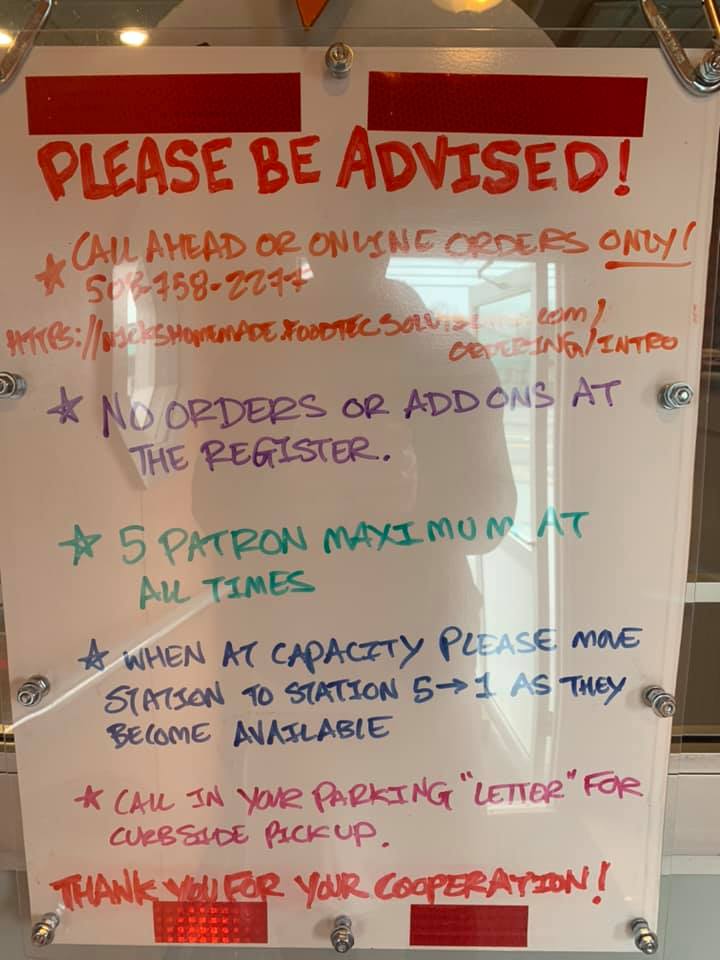 PLEASE BE ADVISED!
CALL AHEAD OR ONLINE ORDERS ONLY!
508-758-2277
HTTPS://NICKSHOMEMADE.FOODTECSOLUTIONS.com/
ORDERING/INTRO
NO ORDERS OR ADD ONS AT
THE REGISTER.
5 PATRON MAXIMUM AT
ALL TIMES
WHEN AT CAPACITY PLEASE MOVE
STATION TO STATION 5→1 AS THEY
BECOME AVAILABLE
CALL IN YOUR PARKING "LETTER" FOR
CURBSIDE PICKUP.
THANK YOU FOR YOUR COOPERATION!